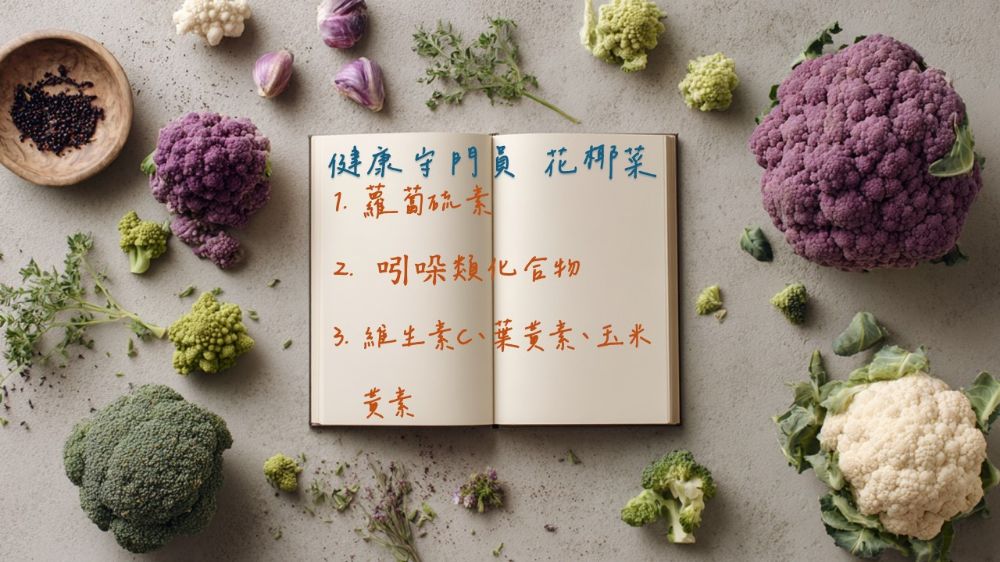 健康守門員 花椰菜
1. 蘿蔔硫素
2. 吲哚類化合物
3. 維生素C、葉黃素、玉米
黃素